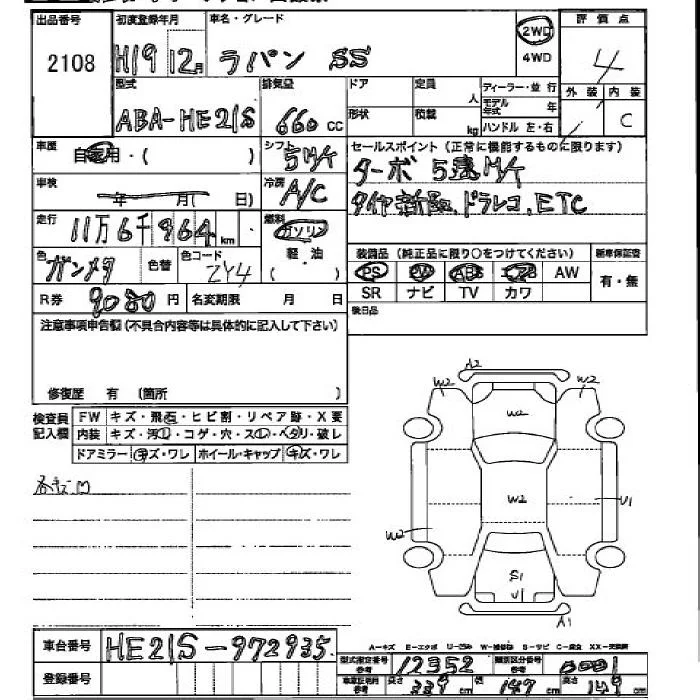 出品番号 初度登録年月 車名・グレード 評価点
2108 H19 12月 ラパン SS 2WD 4WD 4
型式 排気量 ドア 定員 人 ディーラー・並行 外装 内装
ABA-HE21S 660 CC 形状 積載 kg モデル年式 年 ハンドル 左・右 C
車歴 自家用・( ) シフト 5M/T セールスポイント (正常に機能するものに限ります)
ターボ 5速M/T
車検 年 月( 日) 冷房 A/C
タイヤ新品、ドラレコ、ETC
走行 11万6千964km 燃料 ガソリン
軽・油
( )
色 ガンメタ 色替 色コード ZY4
装備品 (純正品に限り○をつけてください) 新車保証書
PS PW ABS エアB AW 有・無
SR ナビ TV カワ
R券 9080円 名変期限 月 日
後日品
注意事項申告欄(不具合内容等は具体的に記入して下さい)
修復歴 有 (箇所 )
検査員記入欄 FW キズ・飛石・ヒビ割・リペア跡・X要
内装 キズ・汚レ・コゲ・穴・スレ・ヘタリ・破レ
ドアミラー キズ・ワレ ホイール・キャップ キズ・ワレ
各キズM
A2
W2 W2
W2
W2
U1
W2
S1
U1
A1
A-キズ E-エクボ U-凹み W-補修跡 S-サビ C-腐食 XX-交換済
車台番号 HE21S-972935
型式指定番号 参考 12352 類別区分番号 参考 0001
登録番号
長さ 339 cm 幅 147 cm 高さ 149 cm